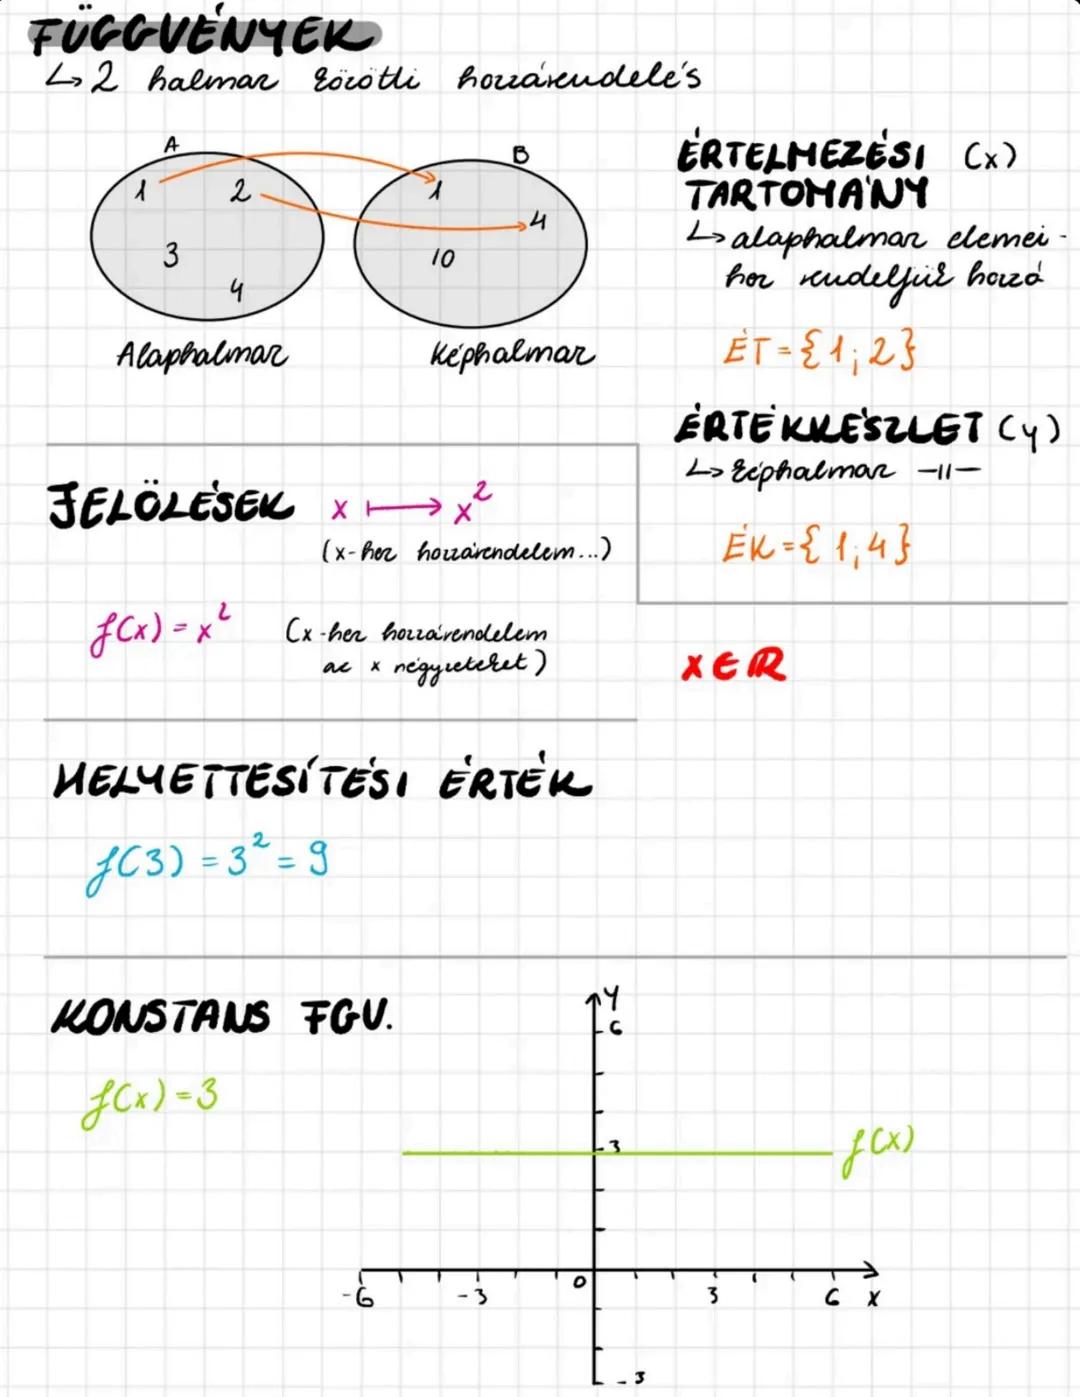 FÜGGVÉNYEK
↳ 2 halmaz közötti hozzárendelés
A
B
1
2
3
4
1
4
10
Alaphalmaz
Képhalmaz
ÉRTELMEZÉSI (x)
TARTOMÁNY
↳ alaphalmaz elemei-
hez rendeljük hozzá
ÉT = {1; 2}
ÉRTÉKKÉSZLET (y)
↳ képhalmaz -||-
ÉK = {1; 4}
JELÖLÉSEK x ⟼ x²
(x-hez hozzárendelem...)
f(x) = x² (x-hez hozzárendelem
az x négyzetéket)
x ∈ ℝ
HELYETTESÍTÉSI ÉRTÉK
f(3) = 3² = 9
KONSTANS FGV.
f(x) = 3
y
6
3
f(x)
0
-6
-3
3
6
x
-3